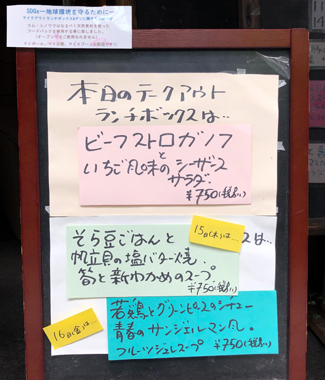 SDGs―地球環境を守るために―
本日のテクアウト
ランチボックスは…
ビーフストロガノフ
と
いちご風味のシーザース
サラダ
¥750(税込)
15日(木)は…
スは…
そら豆ごはんと
帆立貝の塩バター焼、
筍と新わかめのスープ
¥750(税込)
16日(金)は…
若鶏とグリーンピースのシチュー
青春のサンジェルマン風。
フルーツジュレスープ ¥750(税込)